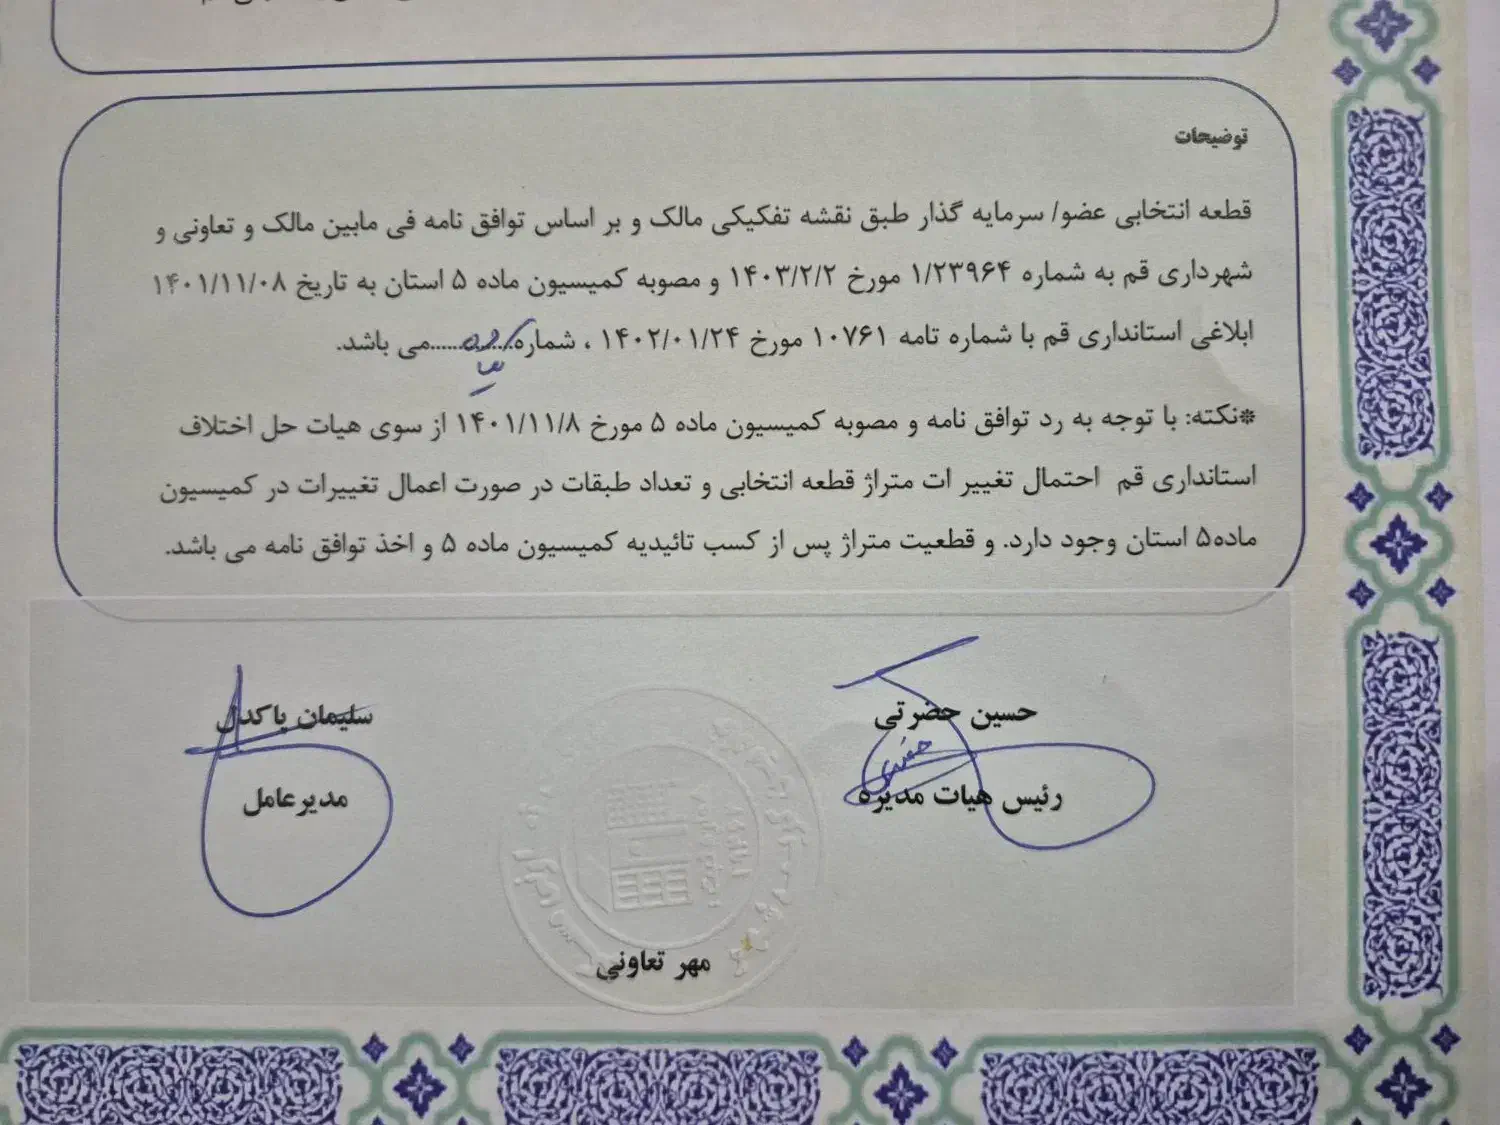 توضیحات
قطعه انتخابی عضو/ سرمایه گذار طبق نقشه تفکیکی مالک و بر اساس توافق نامه فی مابین مالک و تعاونی و
شهرداری قم به شماره ۱/۲۳۹۶۴ مورخ ۱۴۰۳/۲/۲ و مصوبه کمیسیون ماده ۵ استان به تاریخ ۱۴۰۱/۱۱/۰۸
ابلاغی استانداری قم با شماره نامه ۱۰۷۶۱ مورخ ۱۴۰۲/۰۱/۲۴ ، شماره..........می باشد.
*نکته: با توجه به رد توافق نامه و مصوبه کمیسیون ماده ۵ مورخ ۱۴۰۱/۱۱/۸ از سوی هیات حل اختلاف
استانداری قم احتمال تغییر ات متراژ قطعه انتخابی و تعداد طبقات در صورت اعمال تغییرات در کمیسیون
ماده۵ استان وجود دارد. و قطعیت متراژ پس از کسب تائیدیه کمیسیون ماده ۵ و اخذ توافق نامه می باشد.
حسین حضرتی
سلیمان پاکدل
رئیس هیات مدیره
مدیرعامل
مهر تعاونی